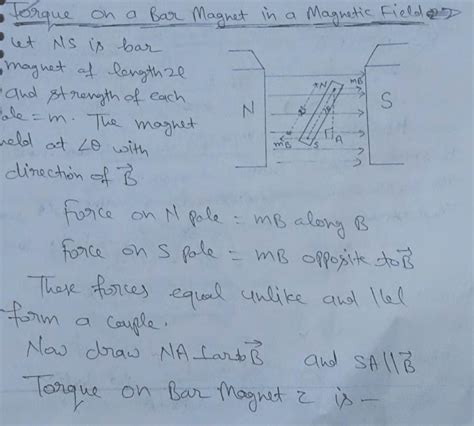 Torque on a Bar Magnet in a Magnetic Field
Let NS is bar
magnet of length 2l
and strength of each
pole = m. The magnet
held at ∠θ with
direction of B⃗
N
N
mB
S
mB
S
A
Force on N pole = mB along B
Force on S pole = mB opposite to B⃗
These forces equal unlike and ||el
form a couple.
Now draw NA ⊥ar to B⃗ and SA||B⃗
Torque on Bar Magnet τ is -